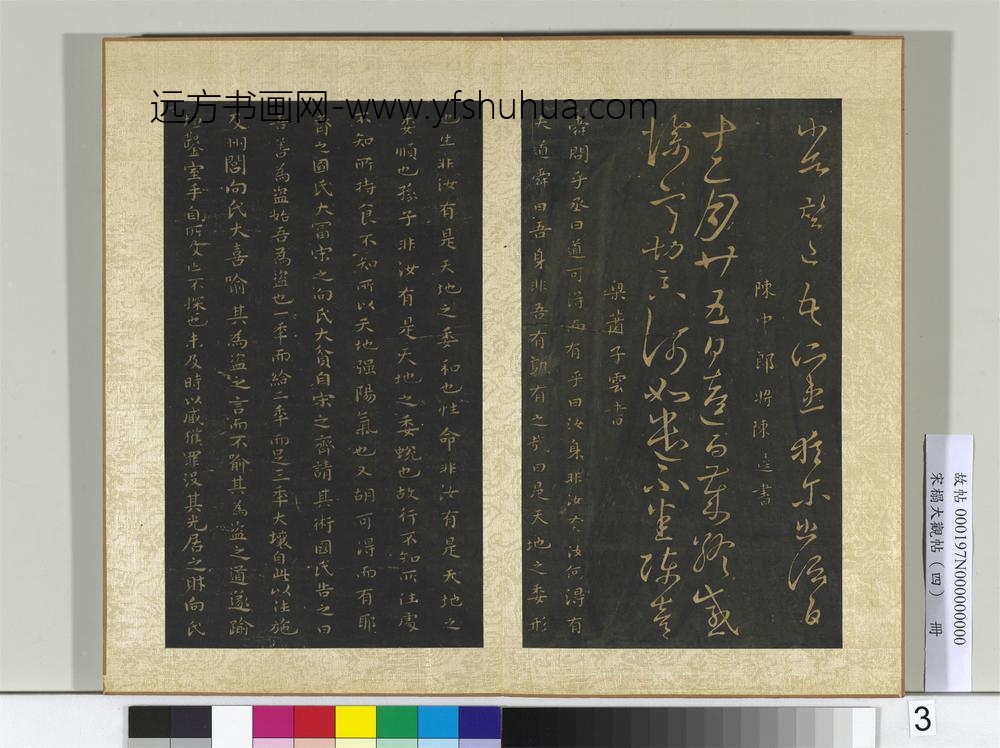 远方书画网-www.yfshuhua.com
陳中郎將陳逵書
十二月廿五日逵白歲終感
梁蕭子雲書
舜問乎丞曰道可得而有乎曰汝身非汝有汝何得有
夫道舜曰吾身非吾有孰有之哉曰是天地之委形
也生非汝有是天地之委和也性命非汝有是天地之
委順也孫子非汝有是天地之委蛻也故行不知所往處
不知所持食不知所以天地强陽氣也又胡可得而有耶
齊之國氏大冨宋之向氏大貧自宋之齊請其術國氏告之曰
吾善為盜始吾為盜也一年而給二年而足三年大壤自此以往施
及州閭向氏大喜喻其為盜之言而不喻其為盜之道遂踰
鑿室手目所及亡不探也未及時以臧獲罪没其先居之財向氏
故帖 000197N000000000
宋搨大觀帖（四） 冊
3